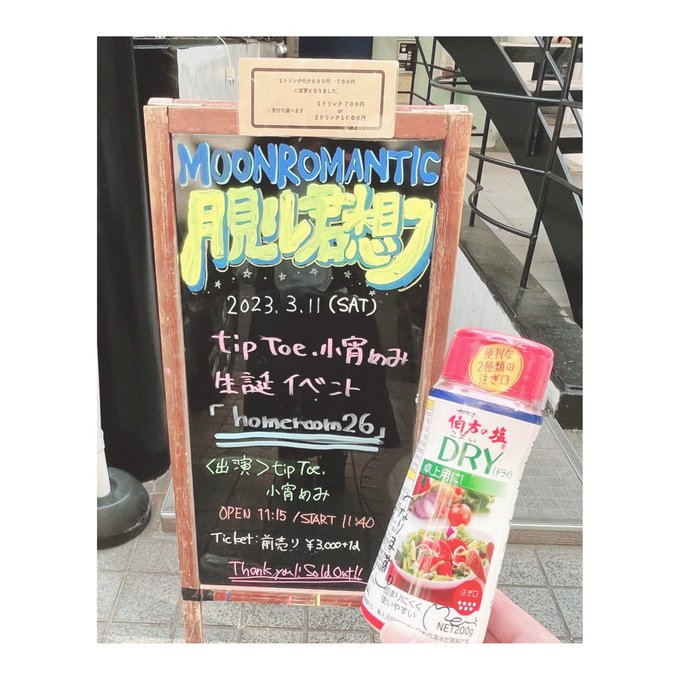 1ドリンク代が600円→700円
に変更となりました。
※受付で選べます
1ドリンク 700円
or
2ドリンク1000円
MOONROMANTIC
月見ル君想フ
2023.3.11(SAT)
tip Toe.小宵めみ
生誕イベント
「homeroom26」
<出演>tip Toe.
小宵めみ
OPEN 11:15 / START 11:40
Ticket:前売り ¥3,000+1d
Thank you!! Sold Out!!
便利な
2種類の
注ぎ口
伯方の塩
DRY
(ドライ)
卓上用に!
固まりにくく
使いやすい
注ぎ口
NET200g